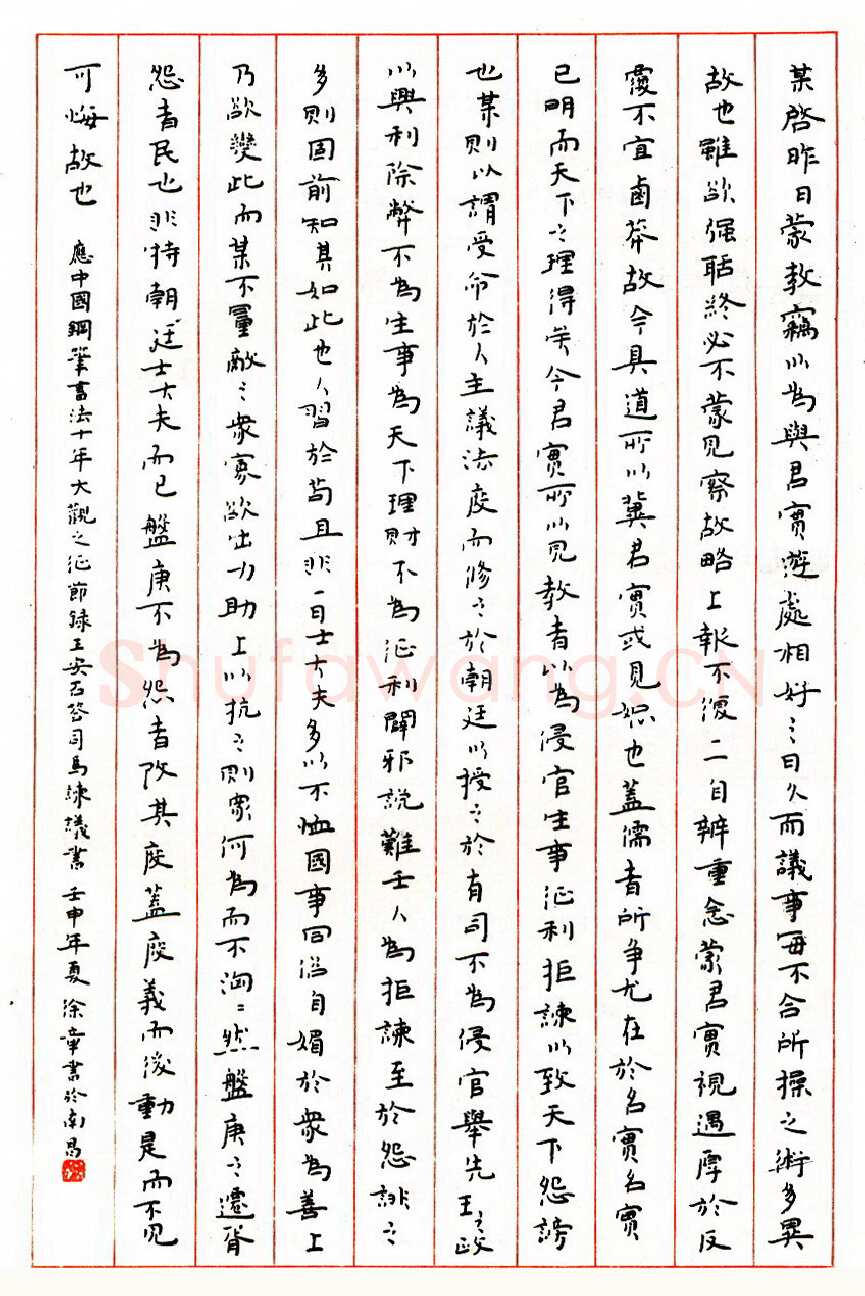 某啓昨日蒙教竊以為與君實遊處相好之日久而議事每不合所操之術多異
故也雖欲强聒終必不蒙見察故略上報不復一一自辨重念蒙君實視遇厚於反
覆不宜鹵莽故今具道所以冀君實或見恕也蓋儒者所争尤在於名實名實
已明而天下之理得矣今君實所以見教者以為侵官生事征利拒諫以致天下怨謗
也某則以謂受命於人主議法度而修之於朝廷以授之於有司不為侵官舉先王之政
以興利除弊不為生事為天下理財不為征利闢邪説難壬人為拒諫至於怨誹之
多則固前知其如此也人習於苟且非一日士大夫多以不恤國事同俗自媚於衆為善上
乃欲變此而某不量敵之衆寡欲出力助上以抗之則衆何為而不洶〻然盤庚之遷胥
怨者民也非特朝廷士大夫而已盤庚不為怨者改其度蓋度義而後動是而不見
可悔故也
應中國鋼筆書法十年大觀之征節録王安石答司馬諫議書 壬申年夏 徐章書於南昌
Shufawang.CN